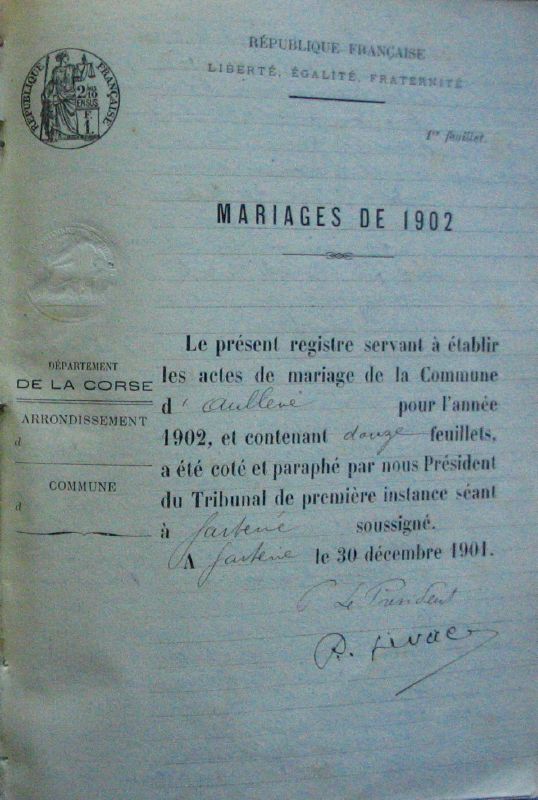 RÉPUBLIQUE FRANÇAISE
2/10 EN SUS
F
1
RÉPUBLIQUE FRANÇAISE
LIBERTÉ, ÉGALITÉ, FRATERNITÉ
1er feuillet.
MARIAGES DE 1902
DÉPARTEMENT
DE LA CORSE
ARRONDISSEMENT
d
COMMUNE
d
Le présent registre servant à établir
les actes de mariage de la Commune
d' Aullène pour l'année
1902, et contenant douze feuillets,
a été coté et paraphé par nous Président
du Tribunal de première instance séant
à Sartène soussigné.
A Sartène le 30 décembre 1901.
P Le Président